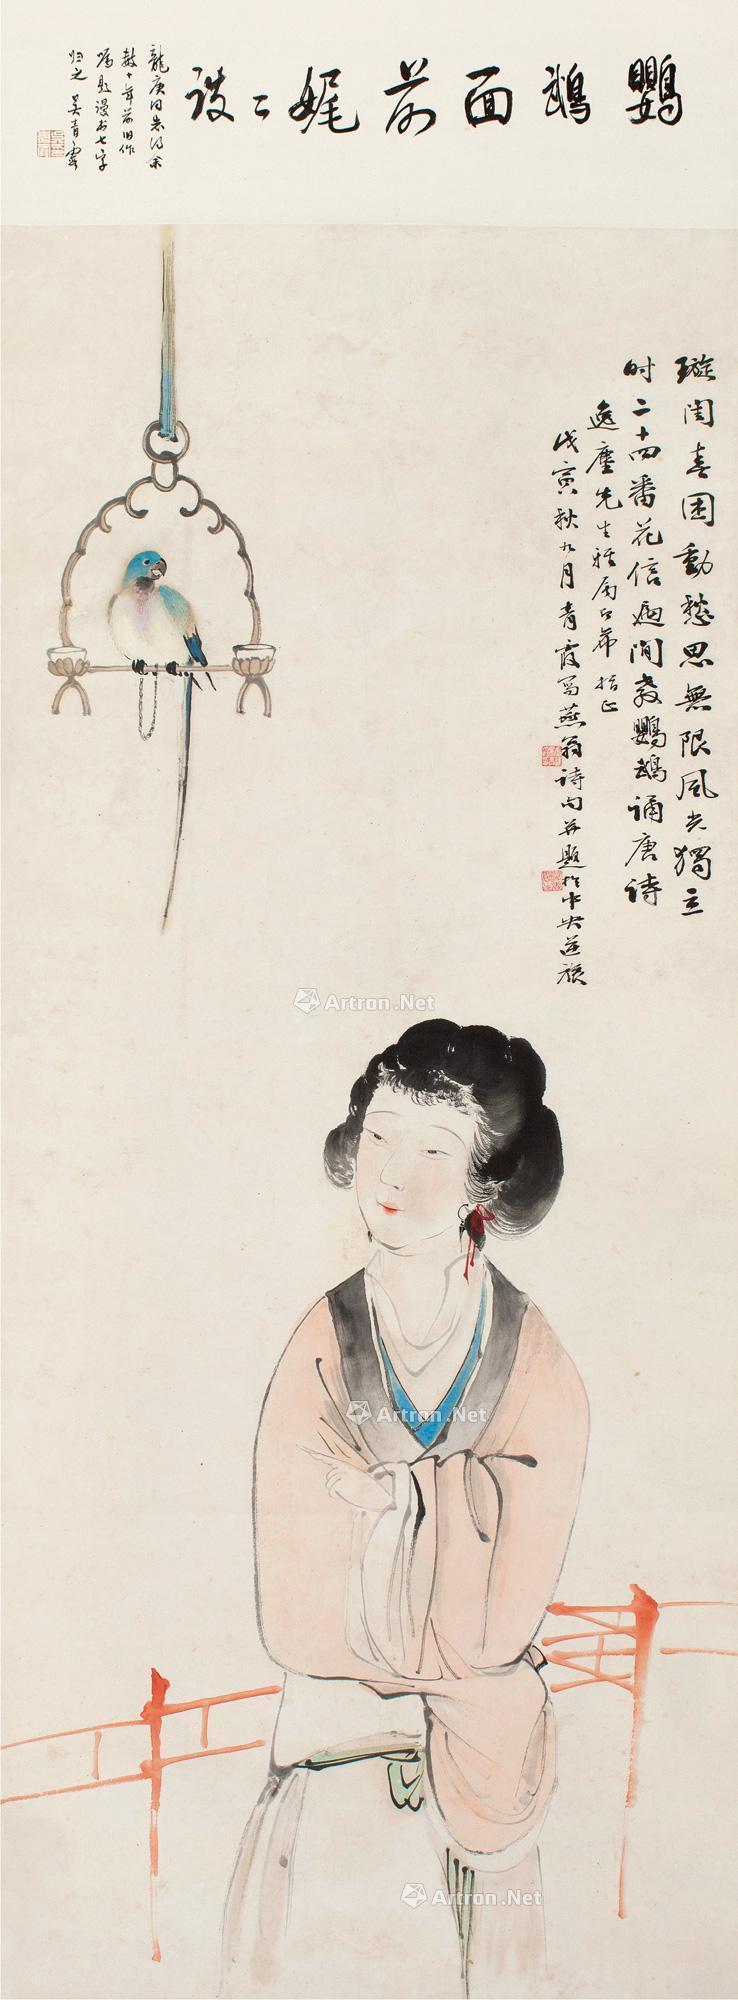 鸚鵡面前娓〻談
龍庚同志得余
數十年前旧作
嘱題漫書七字
归之 吴青霞
璇閨春困動愁思無限風光獨立
時二十四番花信過閒教鸚鵡誦唐詩
逸塵先生雅屬即希指正
戊寅秋九月青霞寫燕翁詩句并題於中央逆旅
Artron.Net
Artron.Net
Artron.Net